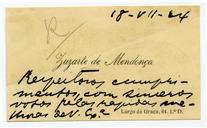 18-VII-24
R/
Zuzarte de Mendonça
Respeitosos cumpri-
mentos, com sinceros
votos pelas rapidas me-
lhoras de V. Exª
Largo da Graça, 61, 1.º D.